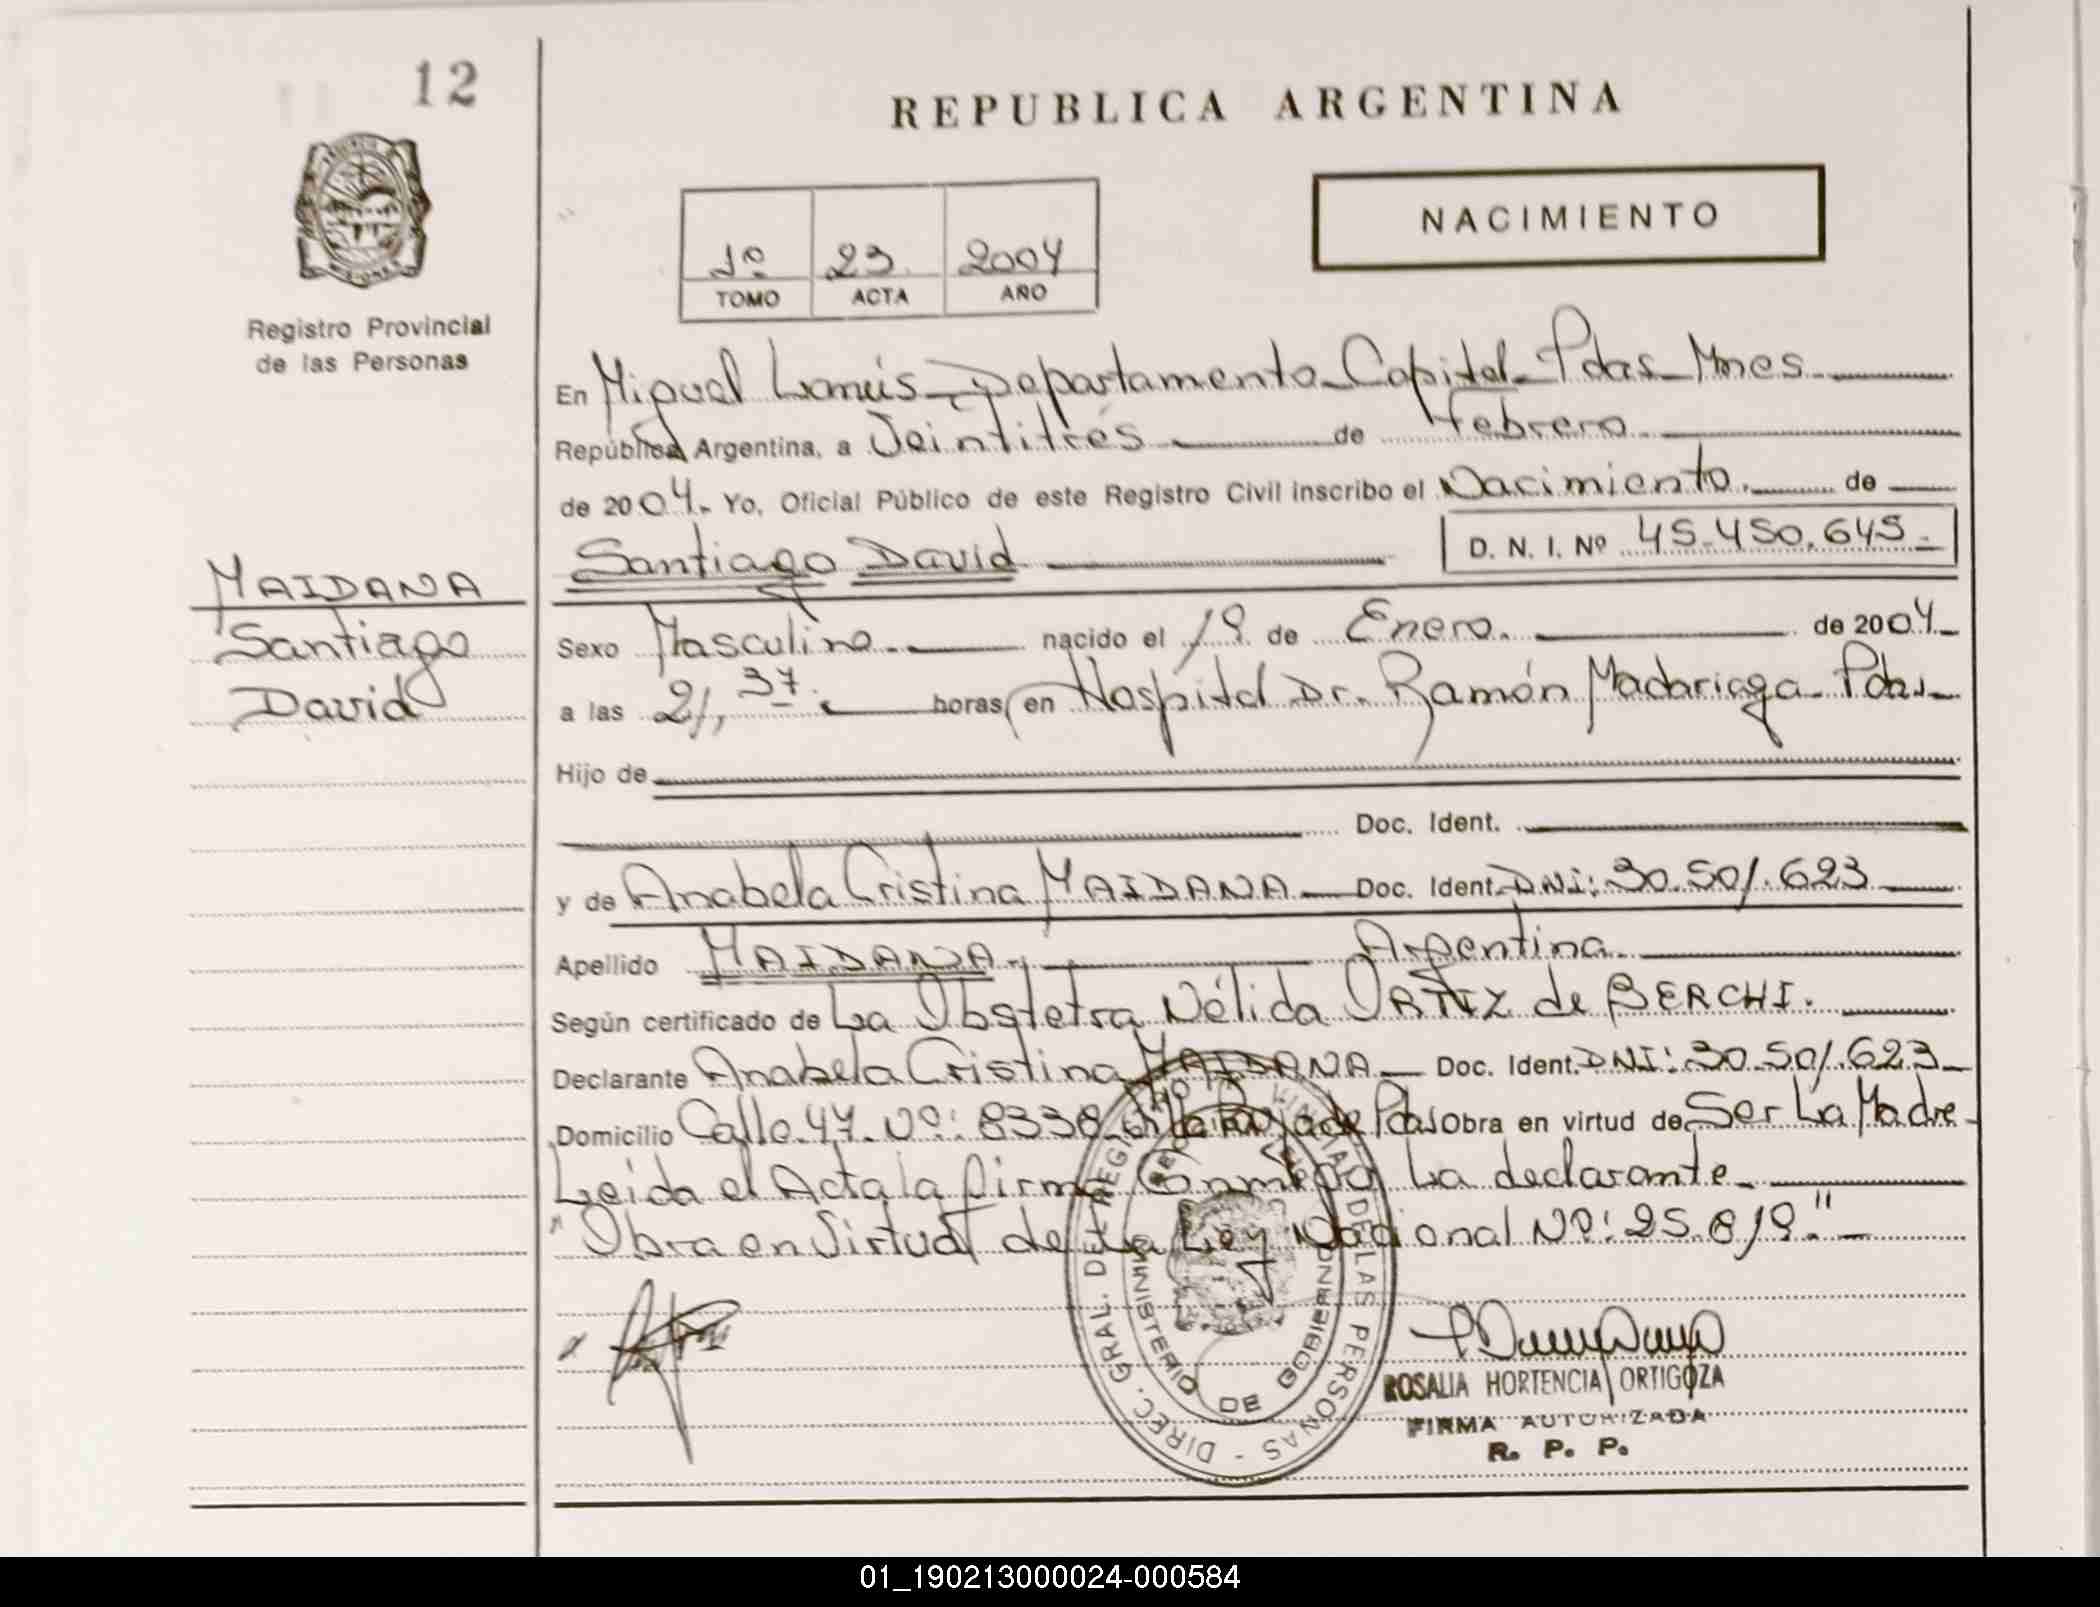 12
REPUBLICA ARGENTINA
NACIMIENTO
1º 23 2004
TOMO ACTA AÑO
Registro Provincial
de las Personas
En Miguel Lanús - Departamento Capital - Pdas - Mnes
República Argentina, a Veintitrés de febrero
de 2004. Yo, Oficial Público de este Registro Civil inscribo el Nacimiento. de
Santiago David D. N. I. Nº 45.450.645.-
MAIDANA
Santiago
David
Sexo Masculino.- nacido el 19 de Enero. de 2004.-
a las 21,37. horas, en Hospital Dr. Ramón Madariaga - Pdas.-
Hijo de
Doc. Ident.
y de Anabela Cristina MAIDANA - Doc. Ident. DNI: 30.501.623
Apellido MAIDANA.- Argentina.
Según certificado de La Obstetra Nélida ORTIZ de BERCHI.
Declarante Anabela Cristina MAIDANA - Doc. Ident. DNI: 30.501.623-
Domicilio Calle.47.Nº: 8338 de Pdas Obra en virtud de Ser La Madre-
Leida el Acta la firma Conmigo La declarante.
"Obra en Virtud de La Ley Nacional Nº: 25.819."-
DIREC. GRAL. DEL REG DE LAS PERSONAS -
MINISTERIO DE GOBIERNO
ROSALIA HORTENCIA ORTIGOZA
FIRMA AUTORIZADA
R. P. P.
01_190213000024-000584